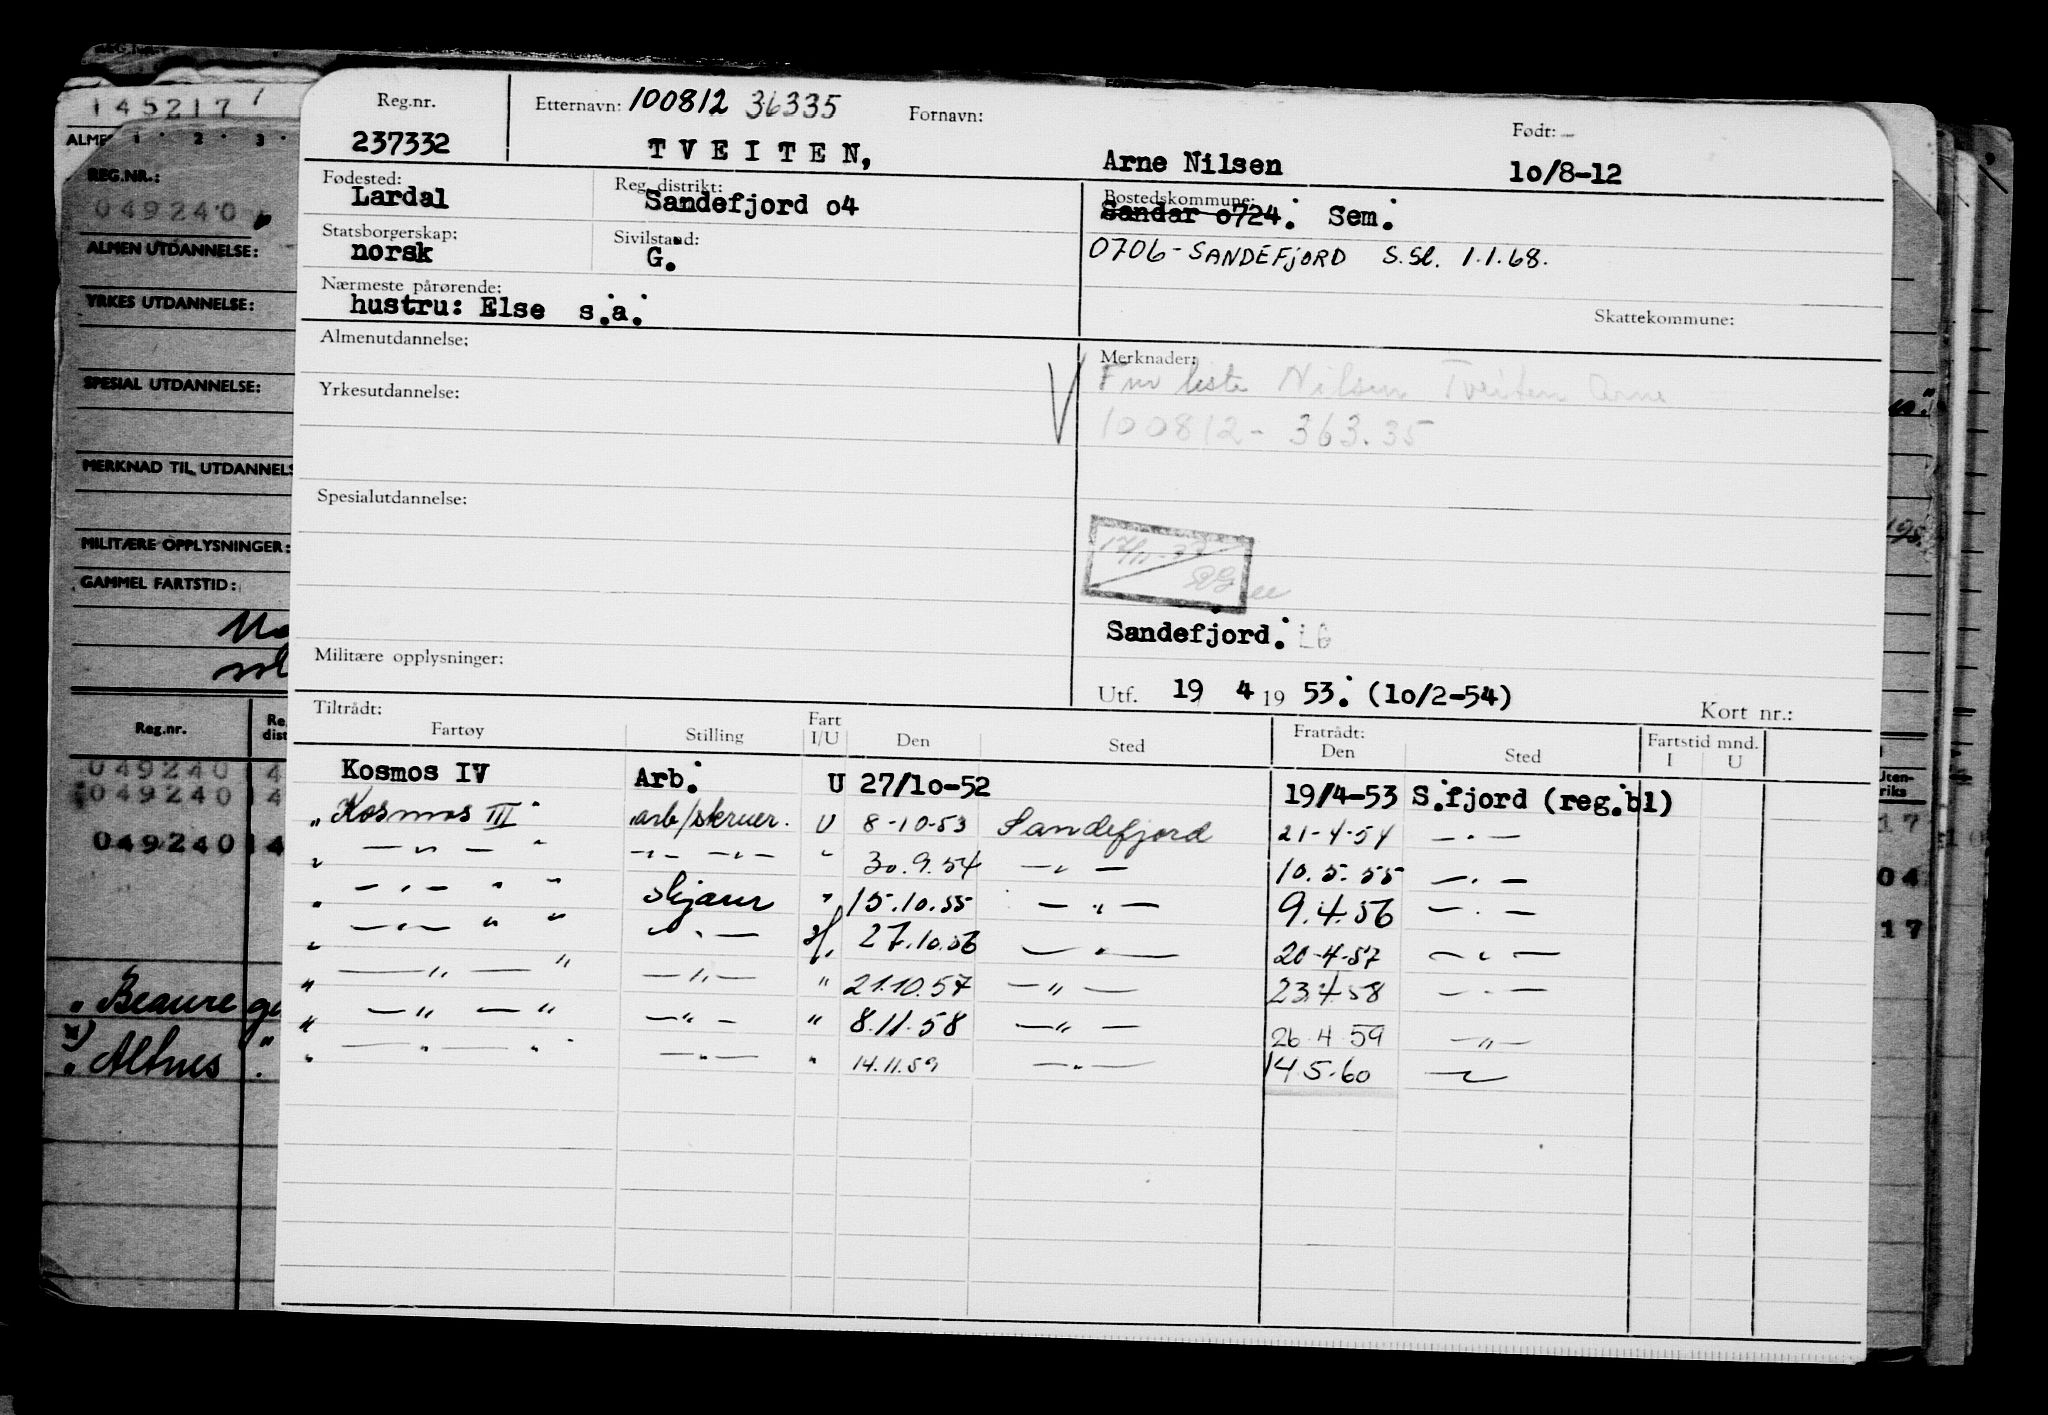 145217
ALME 1 · 2 · 3 ·
REG.NR.:
049240
ALMEN UTDANNELSE:
YRKES UTDANNELSE:
SPESIAL UTDANNELSE:
MERKNAD TIL UTDANNELS
MILITÆRE OPPLYSNINGER:
GAMMEL FARTSTID:
Reg.nr. Re dist
049240 4
049240 4
049240 4
" Beaure ge
x)
" Altnes "
Reg.nr. Etternavn: 100812 36335 Fornavn: Født:
237332 TVEITEN, Arne Nilsen 10/8-12
Fødested: Reg. distrikt: Bostedskommune:
Lardal Sandefjord o4 Sandar o724. Sem.
Statsborgerskap: Sivilstand: 0706-SANDEFJORD S.Sl. 1.1.68.
norsk G.
Nærmeste pårørende:
hustru: Else s.a. Skattekommune:
Almenutdannelse: Merknader:
Nilsen Tveiten Arne
Yrkesutdannelse: 100812-363.35
Spesialutdannelse:
Sandefjord. LG
Militære opplysninger:
Utf. 19 4 19 53. (10/2-54)
Tiltrådt: Kort nr.:
Fartøy Stilling Fart I/U Den Sted Fratrådt: Den Sted Fartstid mnd. I U
Kosmos IV Arb. U 27/10-52 19/4-53 S.fjord (reg.bl)
" Kosmos III arb/skruer. U 8-10-53 Sandefjord 21-4-54 — " —
" — " — " — " — — " — " 30.9.54 — " — 10.5.55 — " —
" — " — " " Skjærer " 15.10.55 — " — 9.4.56 — " —
" — " — " " — " — 27.10.56 — " — 20-4-57 — " —
" — " — " — " — " 21.10.57 — " — 23.4.58 — " —
" — " — " — " — " 8.11.58 — " — 26.4.59 — " —
" — " — " " — " — " 14.11.59 — " — 14.5.60 — " —
Uten-
riks
17
04
17